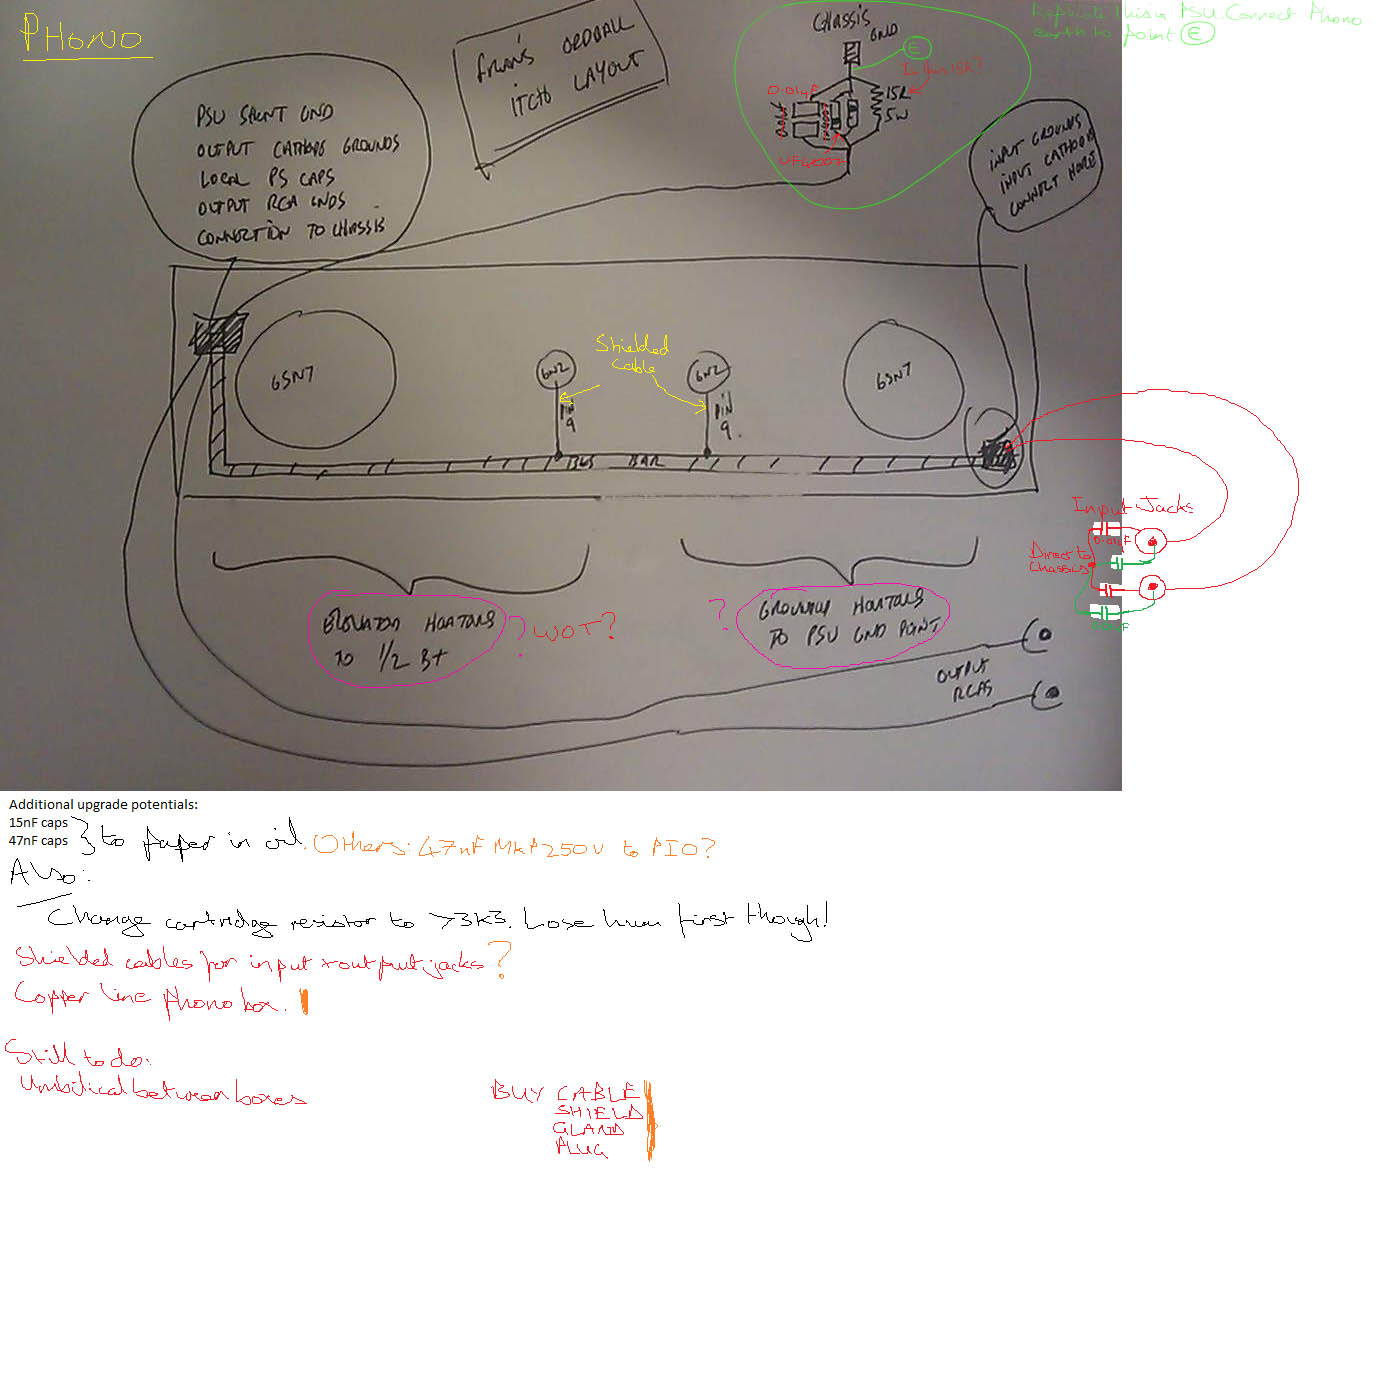 PHONO
FRAN'S ODDBALL
ITCH LAYOUT
CHASSIS
GND
E
0.01uF
15R
5W
UF4007
this in PSU. Connect Phono
earth to point E
PSU SHUNT GND
OUTPUT CATHODE GROUNDS
LOCAL PS CAPS
OUTPUT RCA GNDS
CONNECTION TO CHASSIS
INPUT GROUNDS
INPUT CATHODES
CONNECT HERE
6SN7
6N2
PIN
9
Shielded
Cable
6N2
PIN
9.
6SN7
BUS BAR
Input Jacks
0.01uF
Direct to
Chassis
ELEVATED HEATERS
TO 1/2 B+
? WOT?
?
GROUNDED HEATERS
TO PSU GND POINT
OUTPUT
RCAS
Additional upgrade potentials:
15nF caps
47nF caps
} to paper in oil. Others: 47nF MKP 250V to PIO?
Also:
Change cartridge resistor to >3K3. Lose hum first though!
Shielded cables for input + output jacks?
Copper line phono box.
Still to do:
Umbilical between boxes
BUY CABLE
SHIELD
GLAND
PLUG